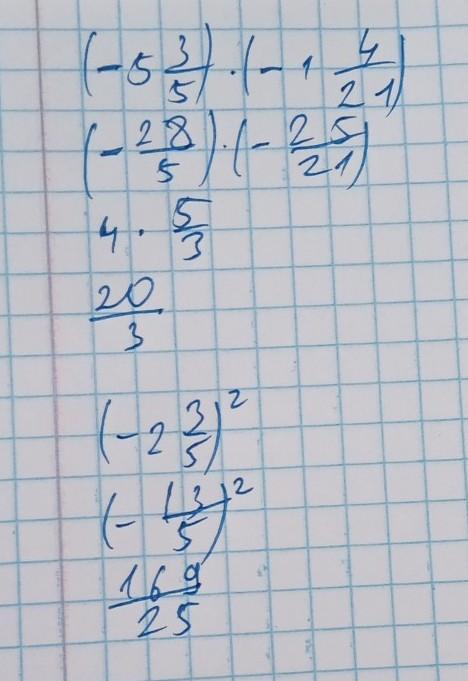 (-5 3/5) · (-1 4/21)
(-28/5) · (-25/21)
4 · 5/3
20/3
(-2 3/5)²
(-13/5)²
169/25